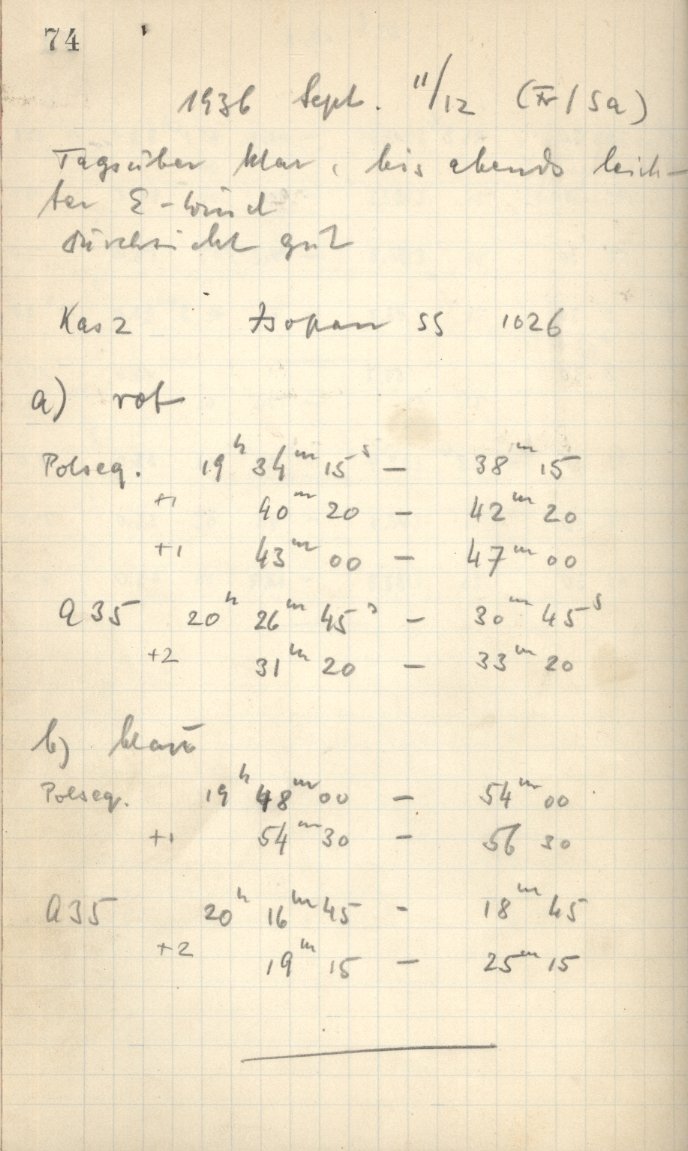 74
1936 Sept. 11/12 (Fr/Sa)
Tagsüber klar, bis abends leich-
ter E-Wind
Durchsicht gut
Kas 2 Isopan SS 1026
a) rot
Polseq. 19h 34m 15s – 38m 15
+1 40m 20 – 42m 20
+1 43m 00 – 47m 00
A35 20h 26m 45s – 30m 45s
+2 31m 20 – 33m 20
b) blau
Polseq. 19h 48m 00 – 54m 00
+1 54m 30 – 56 30
A35 20h 16m 45 – 18m 45
+2 19m 15 – 25m 15